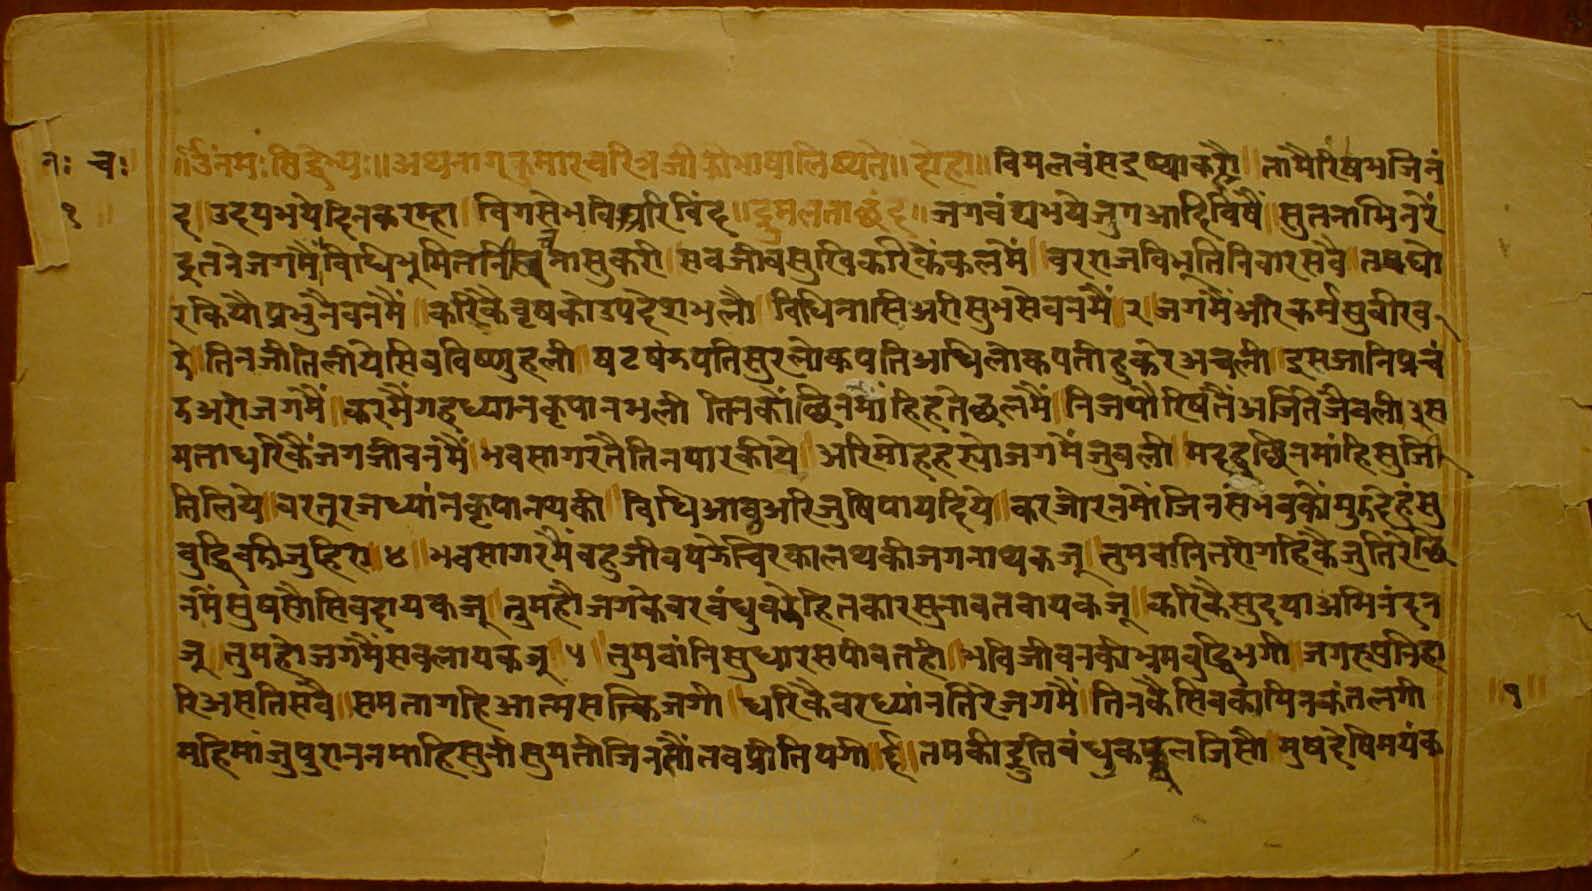 नाः चः
॥र्उंनमः सिद्धेभ्यः॥ अथनागकुमारचरित्रजीकीभाषालिष्यते॥ दोहा॥ विमलवंसइष्वाकरौ तामैरिषभजिनं
१
द उदयभयेदिनकरमहा विगसेभविअरिविंद॥ द्रुमलताछंद॥ जगवंद्यभयेजुगआदिविषैं सुतनाभिनरें
द्रुतनेजगमैं विधिभूमितनी नासुकरी सवजीवसुखिकरिकेंकलमें वरराजविभूतिनिवारसवै तपघो
रकियौप्रभुनैवनमैं करिकैवृषकोउपदेशभलौ विधिनासिअरीसुभसेवनमैं २ जगमैंअरिकर्मसुवीरव
डेतिनजीतिलीयेसिवविष्णुहली षटषंडपतिसुरलोकपतिअधिलोकपतीहुकरेअचली इसजानिप्रचं
डअरीजगमैं करमैंगहध्यानकृपानभली तिनकौंछिनमांहिहतेछलमैं निजपौरिषतैंअर्जितजैवली ३ स
मताधरिकैंजगजीवनमैं भवसागरतैतिनपारकीये अरिमोहहस्योजगमेंजुवली मदद्रुछिनमांहिसुजी
तिलिये वरतुरजध्यांनकृपानथकी विधिआवअरिजुषिपायदिये करजोरनमौंजिनसंभवकौंमुझदेहंसु
वुद्धिवडीजुहिए ४ भवसागरमैंवहुजीवपडेचिरकालथकीजगनाथकजू तुमवांनितरीगहिकैजुतिरेछि
नमैंसुंषसौंसिवदायकजू तुमहौजगकेवरवंधुवडेहितकारसुनावतवायकजू करिकैसुदयाअभिनंदन
जू तुमहोजगमैंसवलायकजू ५ तुमवांनिसुधारसपीवतही भविजीवनकीभ्रमवुद्धिभगी जगहप्रनिहा
रिअसतिसवै समतागहिआत्मसक्तिजगी धरिकैवरध्यांनतिरेजगमैं तिनकैसिवकांमिनकंतलगी
॥१॥
महिमांजुपुराननमाहिसुनीसुमतीजिनसौंतवप्रीतिपगी ६ तमकीद्रुतिवंधुकफूलजिसौ मुषदेषिमयंक